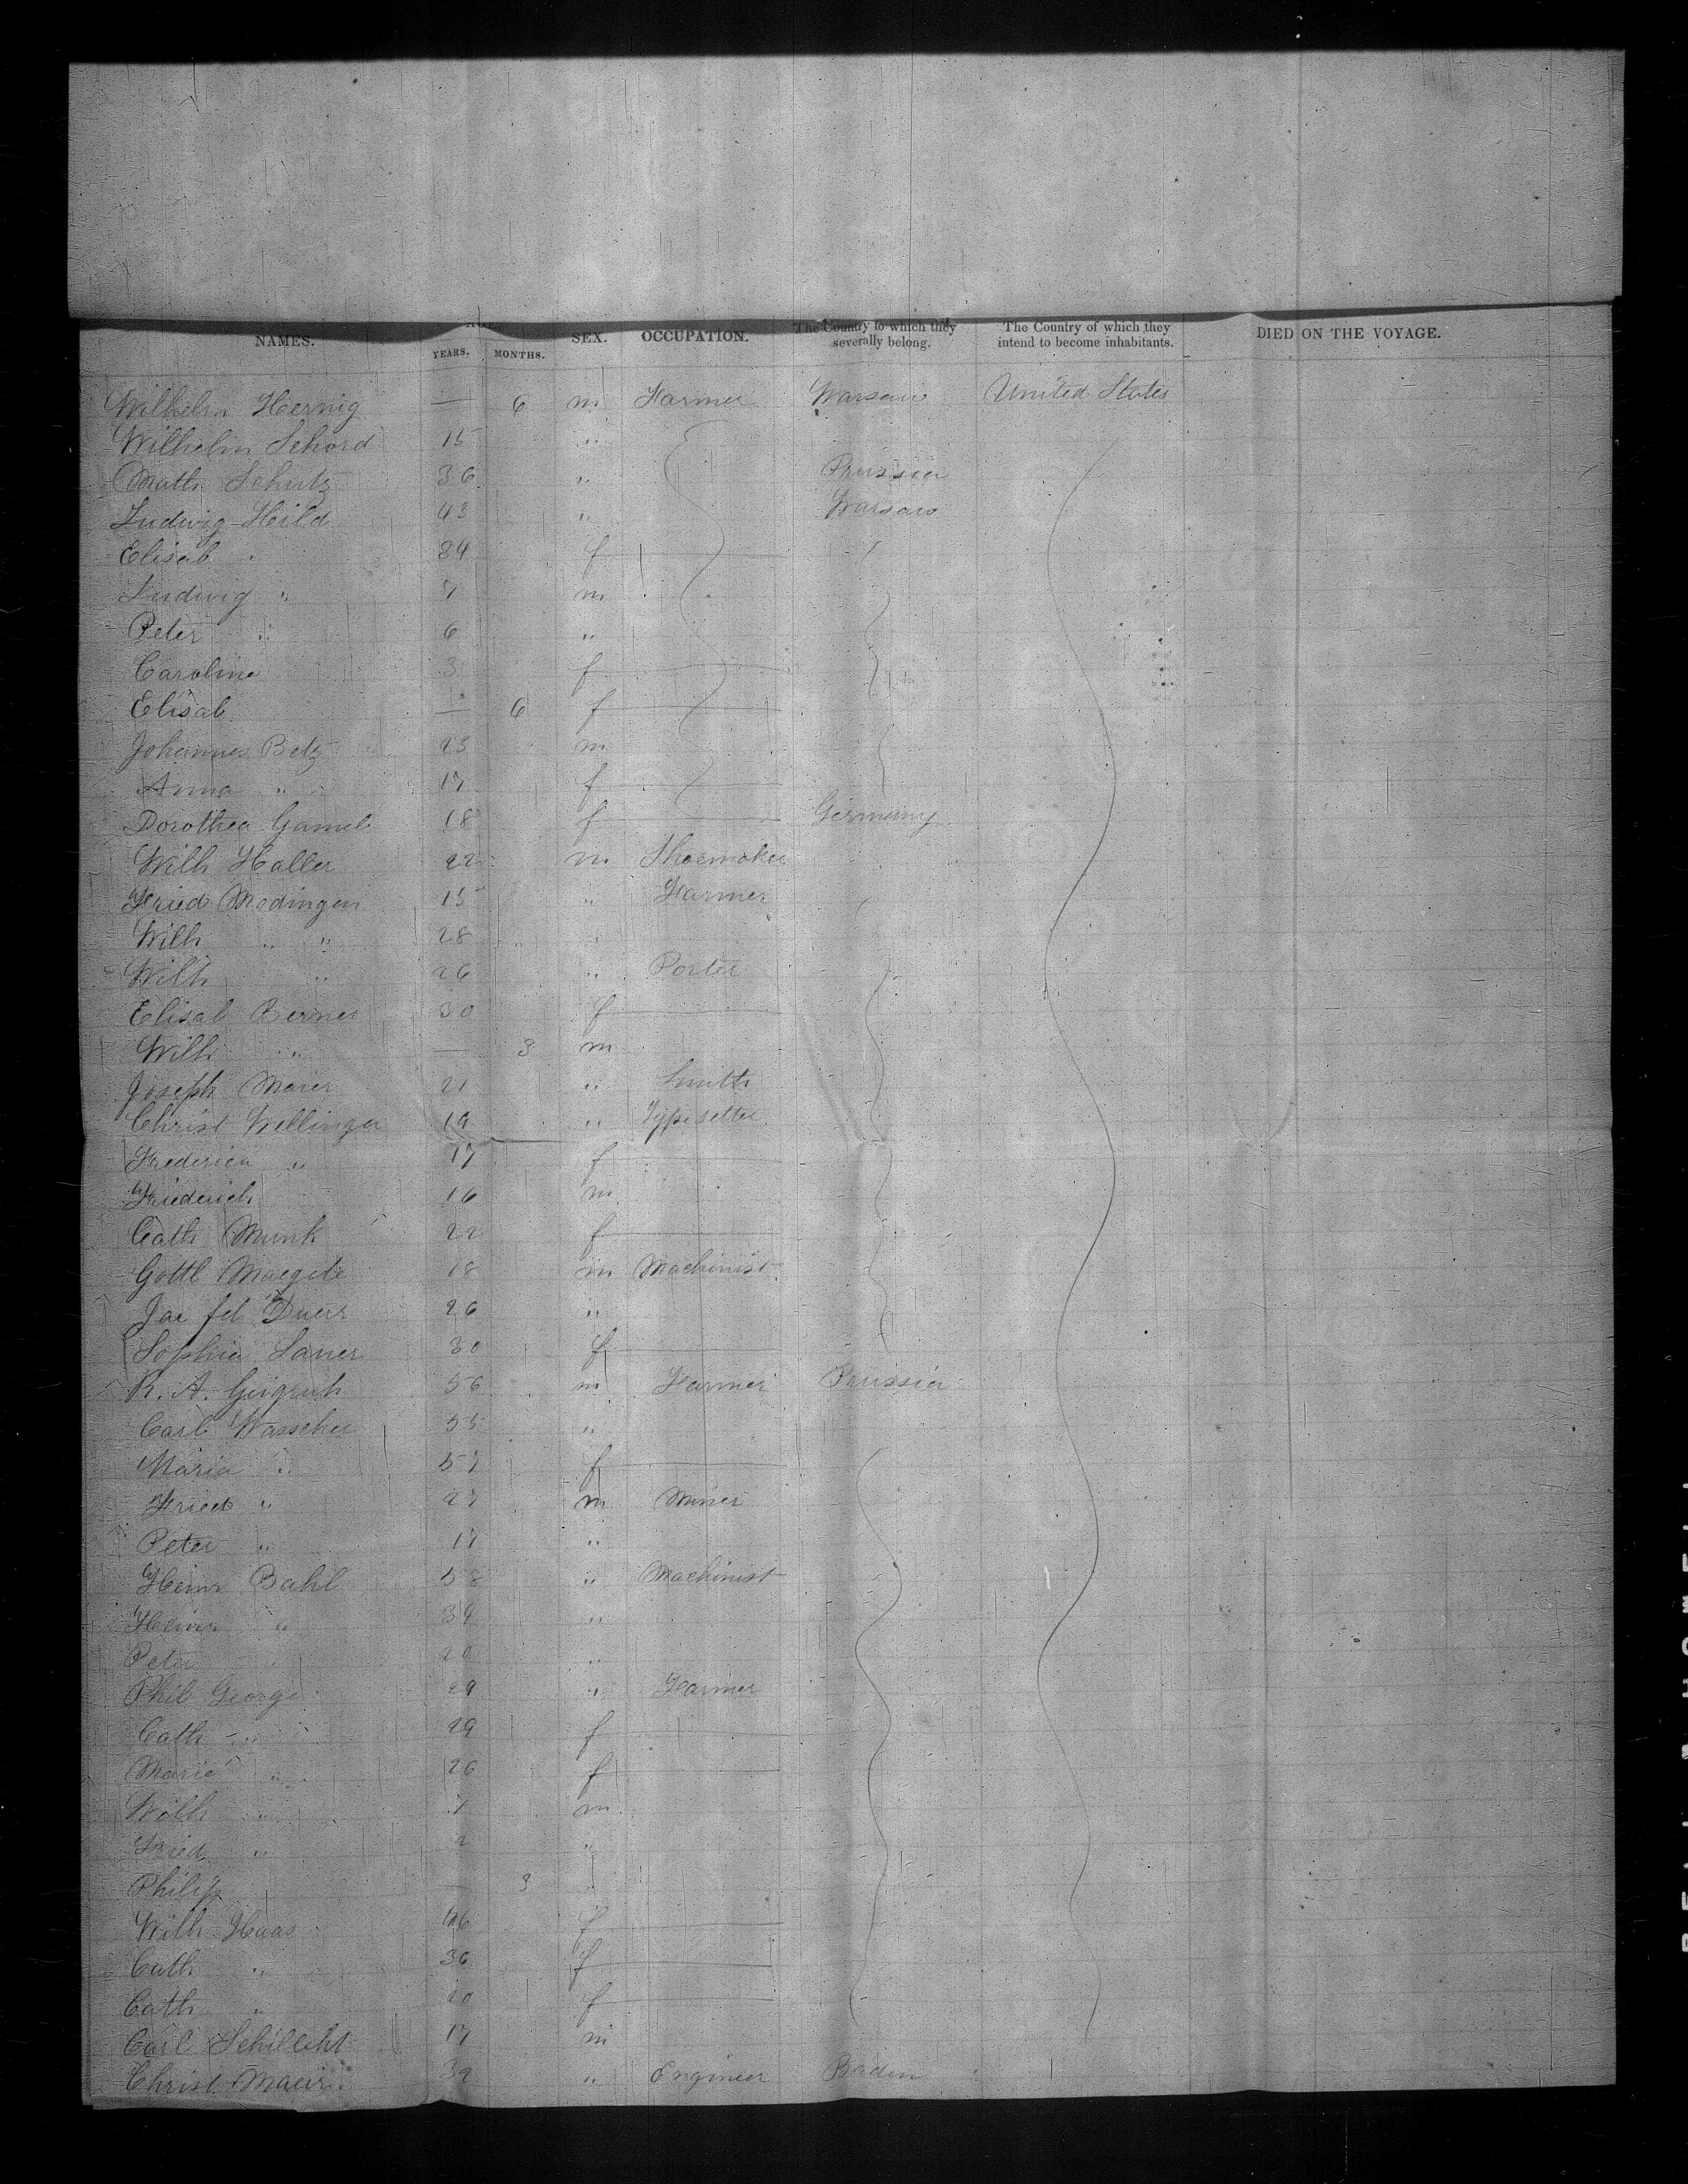 NAMES. YEARS. MONTHS. SEX. OCCUPATION. The Country to which they severally belong. The Country of which they intend to become inhabitants. DIED ON THE VOYAGE.
Wilhelm Hernig — 6 m Farmer Warsaw United States
Wilhelm Schord 15 "
Math Schutz 36 " Prussia
Ludwig Hild 43 " Warsaw
Elisab " 34 f
Ludwig " 7 m
Peter " 6 "
Caroline 3 f
Elisab — 6 f
Johannes Betz 23 m
Anna " 17 f
Dorothea Gamel 18 f Germany
Wilh Haller 22 m Shoemaker
Fried Madingen 15 " Farmer
Wilh " " 28 "
Wilh " 26 " Porter
Elisab Berner 30 f
Wilh " — 3 m
Joseph Maier 21 " Smith
Christ Wellinger 19 " Typesetter
Frederica " 17 f
Friederich 16 m
Cath Munk 22 f
Gottl 18 m Machinist
26 "
Sophia 30 f
R. A. 56 m Farmer Prussia
Carl Wasscher 55 "
Maria " 57 f
Fried " 27 m Miner
Peter " 17 "
Heinr Bahl 58 " Machinist
Heinr " 39 "
Peter 20 "
Phil George 29 " Farmer
Cath " 29 f
Marie " 26 f
Wilh " 7 m
Fried " 2 "
Philip — 3 "
Wilh Haas 46 f
Cath " 36 f
Cath " 20 f
Carl Schillcht 17 m
Christ Maeir 39 " Engineer Baden